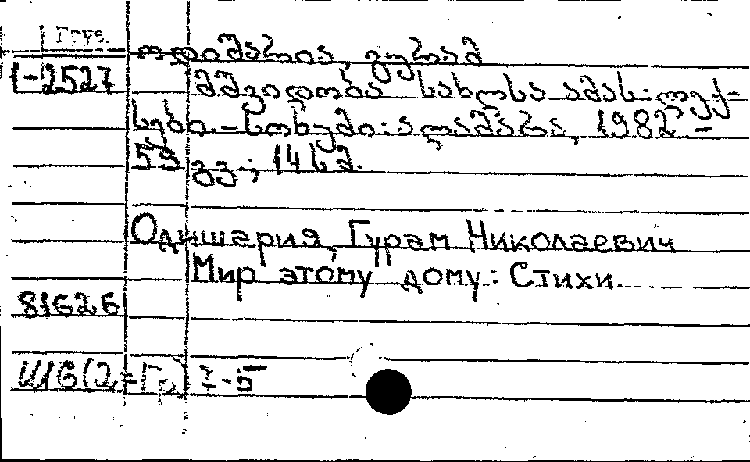 Груз.
ოდიშარია, გურამ
1-2527
მშვიდობა სახლსა ამას: ლექ-
სები.-სოხუმი: ალაშარა, 1982 -
59 გვ.; 14სმ.
Одишария, Гурам Николаевич
Мир этому дому: Стихи.
81626
Ш6(2=Гр)7-5